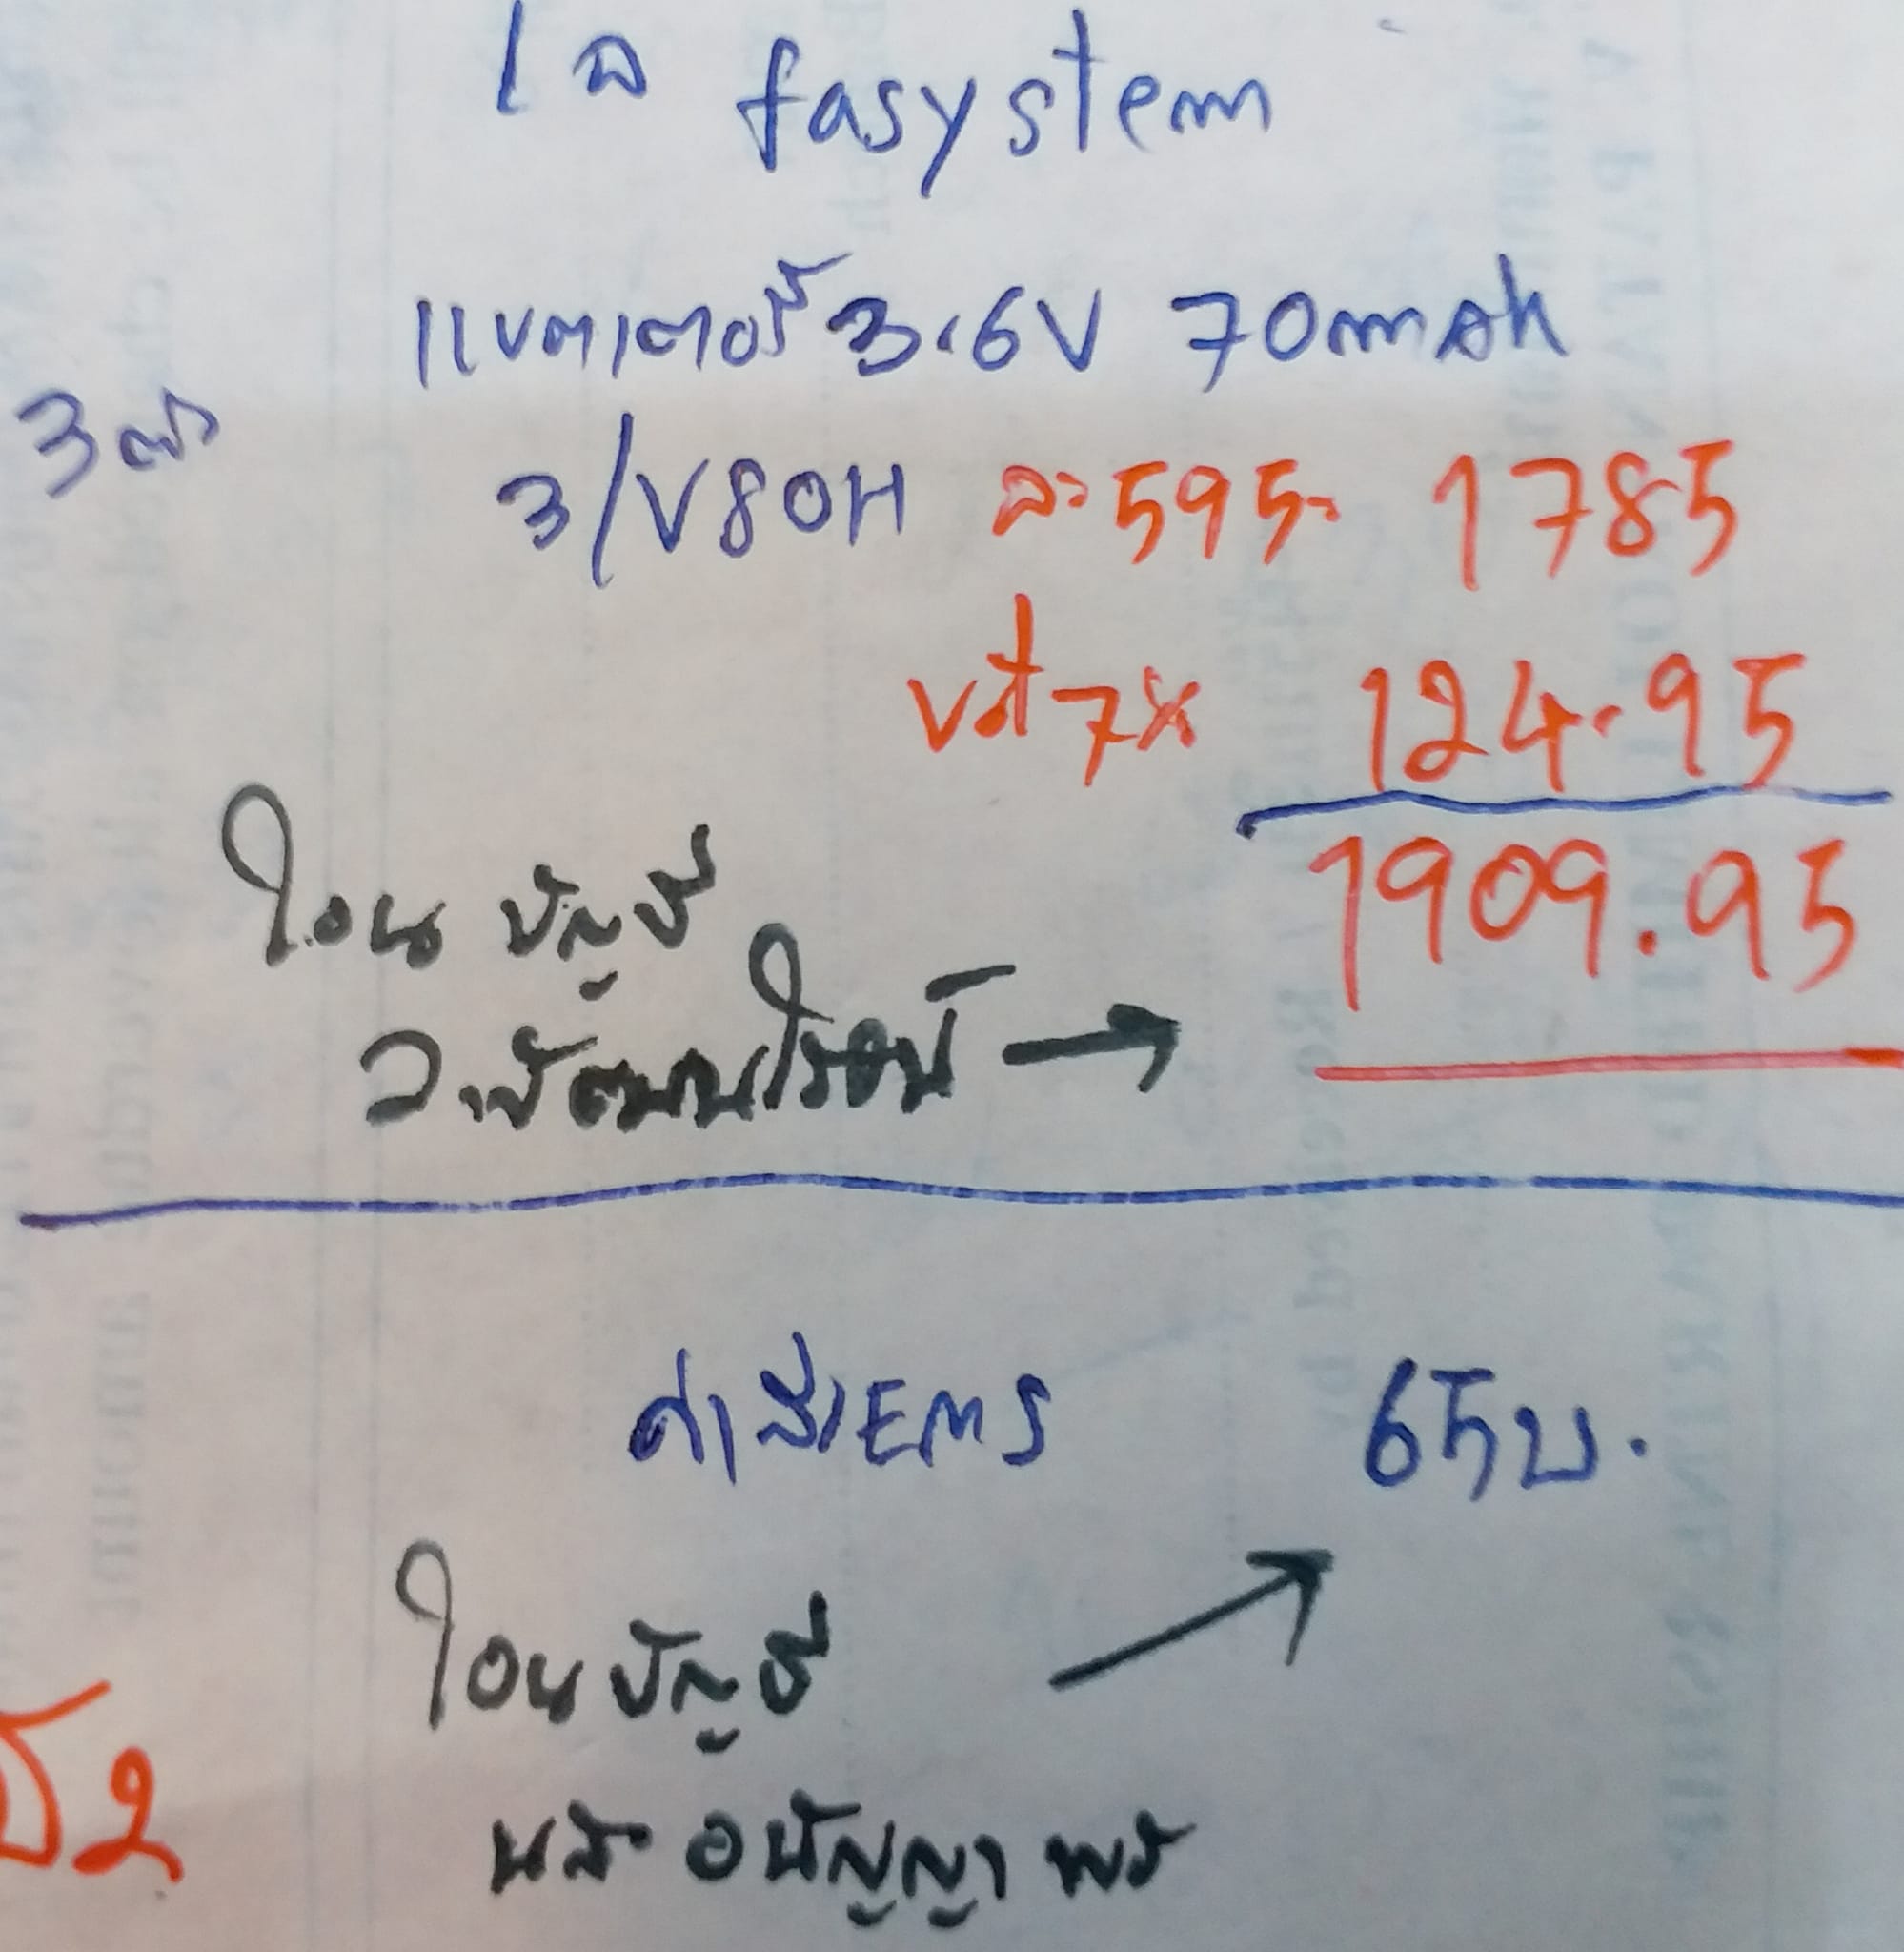 1ด fasystem
แบตเตอรี่ 3.6V 70mAh
3 ตัว 3/V80H ละ 595- 1785
vat 7% 124.95
1909.95
โอนบัญชี
→
ค่าส่ง EMS 65 บ.
โอนบัญชี
นส อนัญญา พร
2